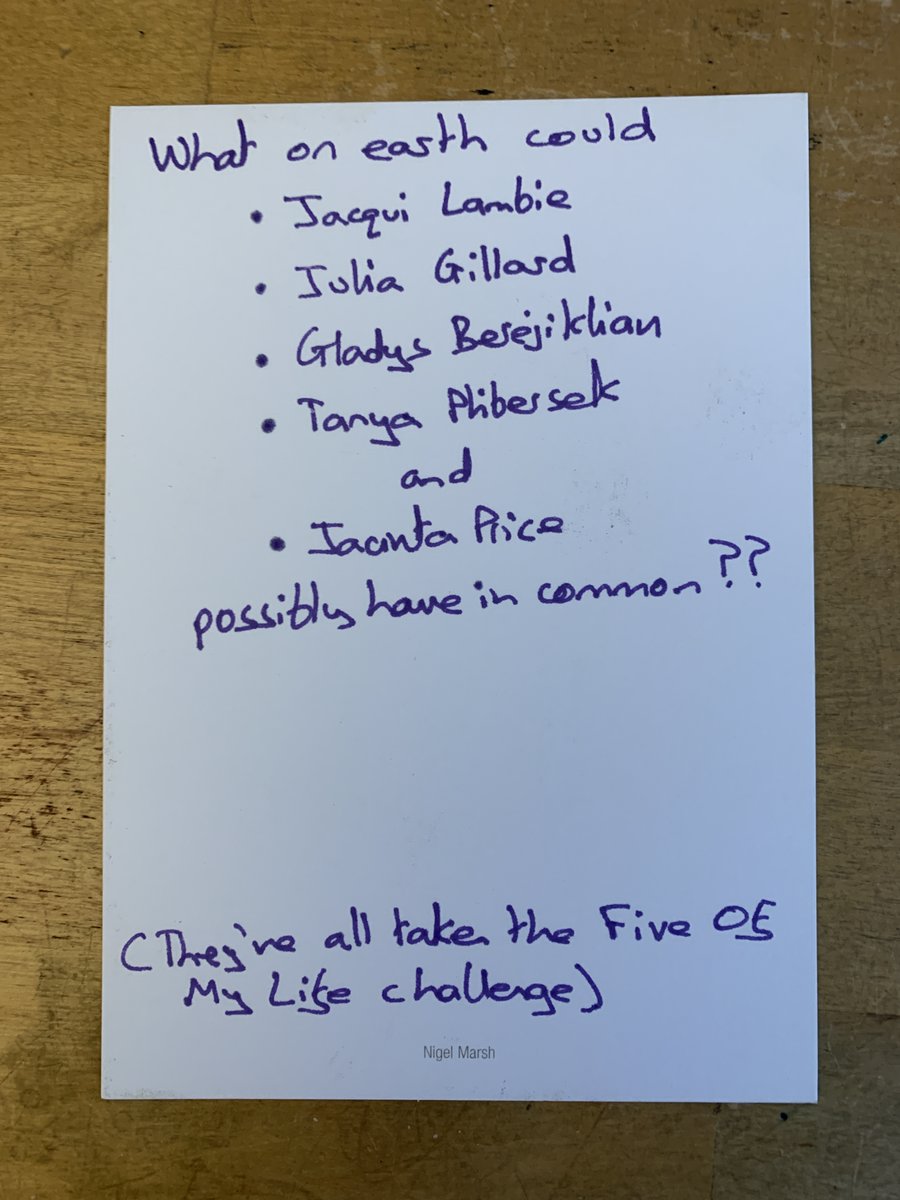 What on earth could
• Jacqui Lambie
• Julia Gillard
• Gladys Berejiklian
• Tanya Plibersek
and
• Jacinta Price
possibly have in common??
(They've all taken the Five Of
My Life challenge)
Nigel Marsh